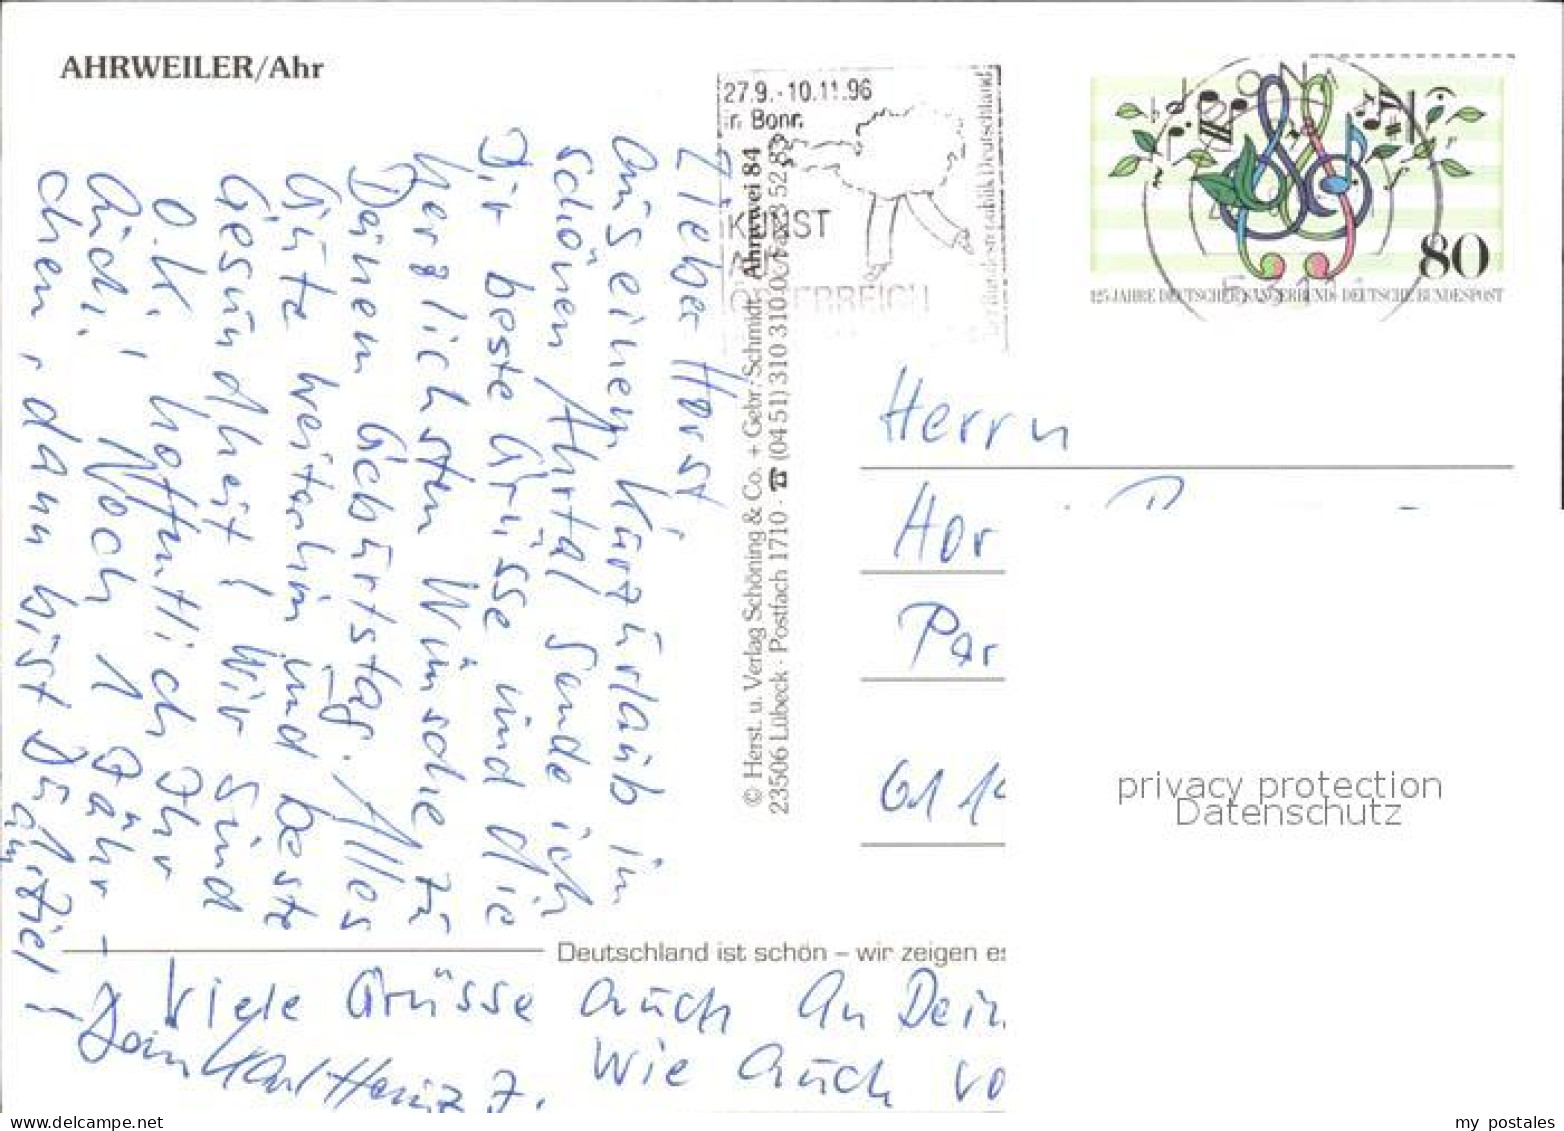 AHRWEILER/Ahr
Lieber Horst
Aus einem Kurzurlaub im
schönen Ahrtal sende ich
Dir beste Grüsse und die
herzlichsten Wünsche zu
Deinem Geburtstag. Alles
Gute weiterhin und beste
Gesundheit! Wir sind
O.K., hoffentlich Ihr
Auch! Noch 1 Jähr-
chen, dann bist Du am Ziel!
Viele Grüsse Auch An Dein
Wie Auch vo
Dein Karl Heinz
© Herst. u. Verlag Schöning & Co. + Gebr. Schmidt
23506 Lübeck · Postfach 1710 · ☎ (04 51) 310 310
Ahrwei 84
27.9.-10.11.96
KUNST
Bundesrepublik Deutschland
80
125 JAHRE DEUTSCHER SÄNGERBUND · DEUTSCHE BUNDESPOST
Herrn
Hor
Par
61 14
Deutschland ist schön – wir zeigen es
privacy protection
Datenschutz
my postales
delcampe.net